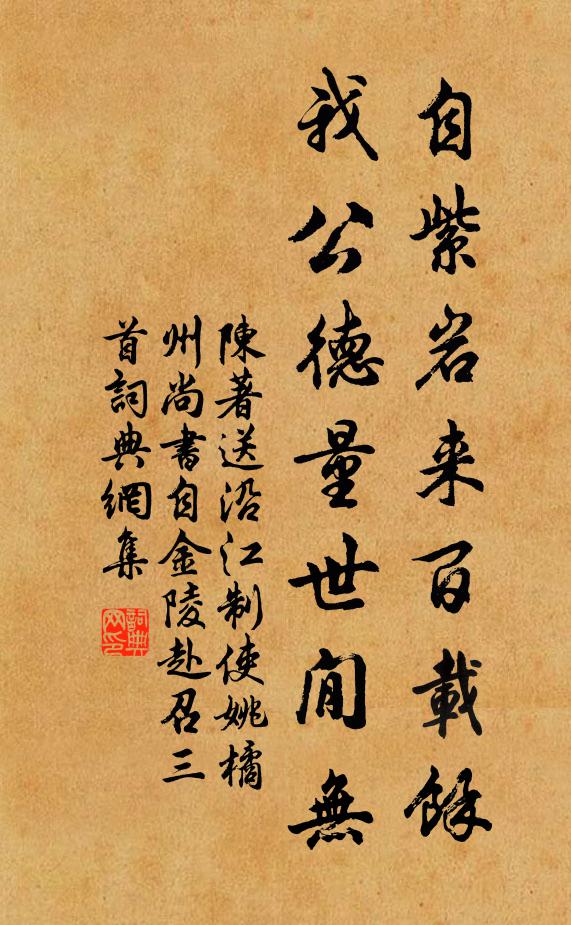 自紫岩来百載餘
我公德量世间無
陳著送沿江制使姚橘
州尚書自金陵赴召三
首詞典網集
詞典
网印